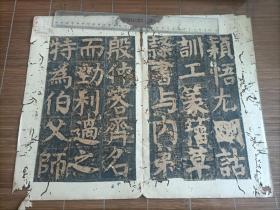 穎悟尤明詁
訓工篆籀草
隸書与内弟
殷仲容齊名
而勁利過之
特為伯父師